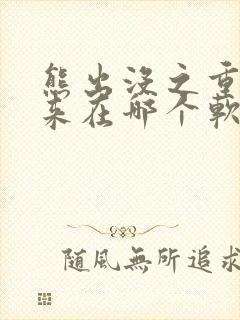 熊出没之重
来在哪个软
随風無所追求